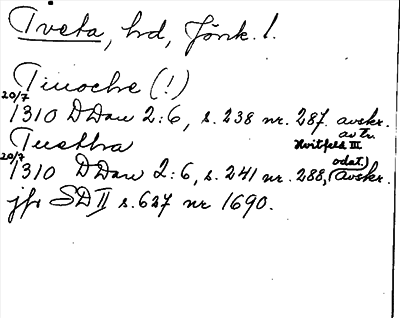 Tveta, hd, Jönk. l.
Tiuoche (!)
20/7
1310 DDan 2:6, s. 238 nr. 287. avskr.
av tr.
Hvitfeld III
Tuethra
odat.)
20/7
1310 DDan 2:6, s. 241 nr. 288, (avskr.
jfr SD II s. 627 nr 1690.